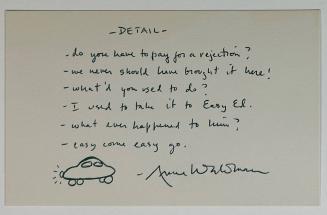 - DETAIL -
- do you have to pay for a rejection?
- we never should have brought it here!
- what'd you used to do?
- I used to take it to Easy Ed.
- what ever happened to him?
- easy come easy go.
- Anne Waldman